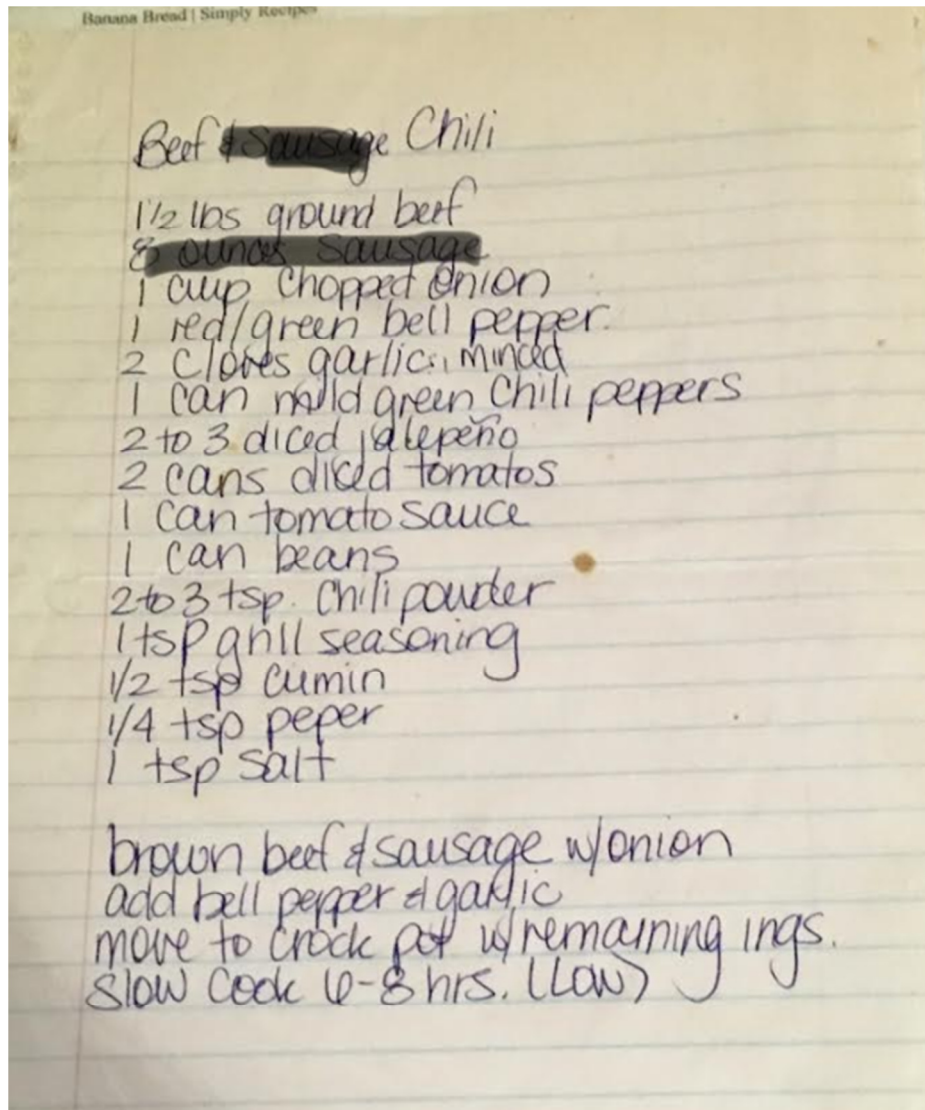 Banana Bread | Simply Recipes
Beef & Sausage Chili
1 1/2 lbs ground beef
8 ounces sausage
1 cup chopped onion
1 red/green bell pepper.
2 cloves garlic, minced
1 can mild green chili peppers
2 to 3 diced jalepeño
2 cans diced tomatos
1 can tomato sauce
1 can beans
2 to 3 tsp. chili powder
1 tsp grill seasoning
1/2 tsp cumin
1/4 tsp peper
1 tsp salt
brown beef & sausage w/onion
add bell pepper & garlic
move to crock pot w/remaining ings.
slow cook 6-8 hrs. (Low)